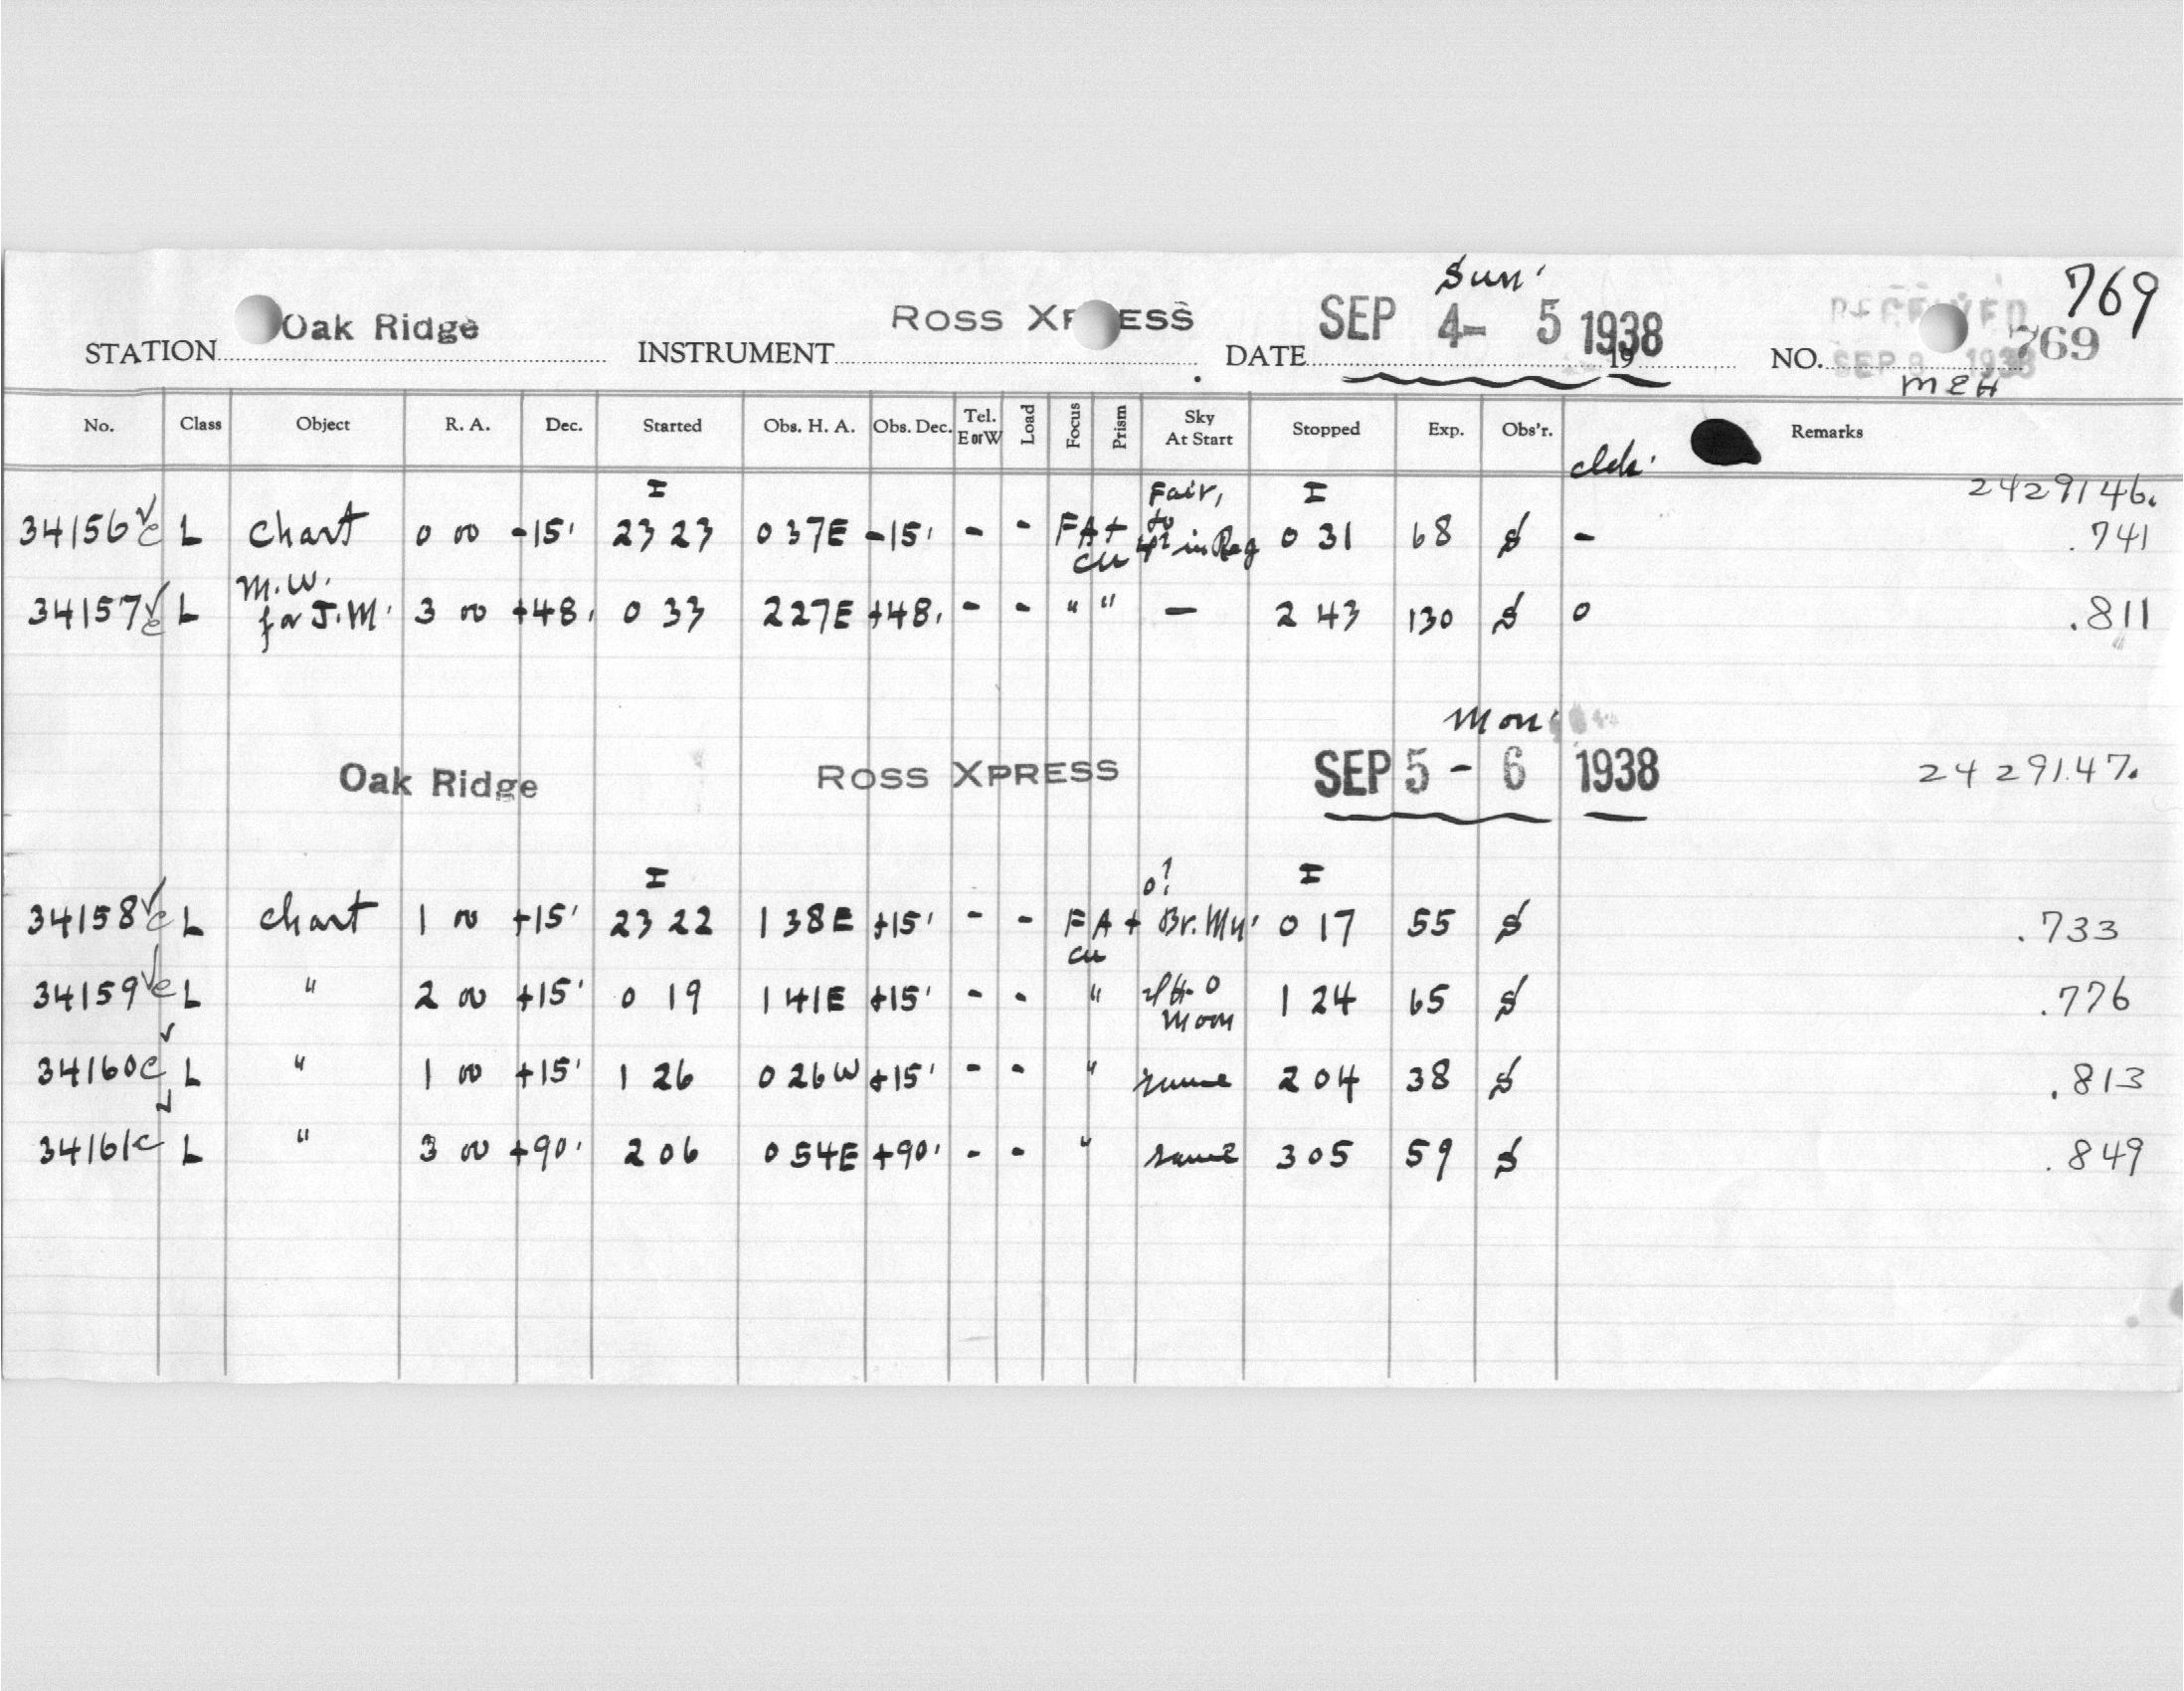 Sun.
769
STATION Oak Ridge INSTRUMENT ROSS XPRESS DATE SEP 4- 5 1938 19 NO. 769
RECEIVED
SEP 8 1938
MEH
No. Class Object R. A. Dec. Started Obs. H. A. Obs. Dec. Tel. E or W Load Focus Prism Sky At Start Stopped Exp. Obs'r. Remarks
2429146.
34156 c L Chart 0 00 -15' 23 23 0 37E -15' - - FA+ cu Fair, 0 31 68 $ - .741
34157 c L M.W. for J.M. 3 00 +48. 0 33 2 27E +48. - - " " - 2 43 130 $ 0 .811
Mon.
Oak Ridge ROSS XPRESS SEP 5 - 6 1938 2429147.
34158 c L chart 1 00 +15' 23 22 1 38E +15' - - FA+ cu 0? 0 17 55 $ .733
34159 c L " 2 00 +15' 0 19 1 41E +15' - - " Moon 1 24 65 $ .776
34160 c L " 1 00 +15' 1 26 0 26W +15' - - " same 2 04 38 $ .813
34161 c L " 3 00 +90' 2 06 0 54E +90' - - " same 3 05 59 $ .849